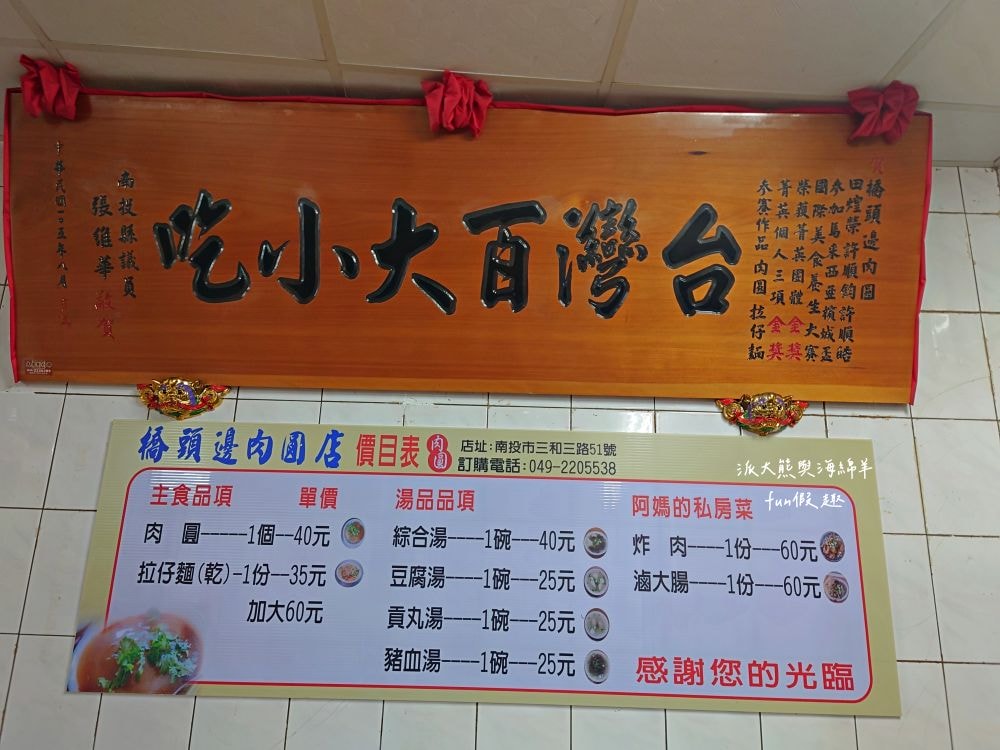 賀橋頭邊肉圓
田煌榮許順鈞許順晧
參加馬來西亞檳城盃
國際美食養生大賽
榮獲菁英團體金獎
菁英個人三項金獎
參賽作品肉圓拉仔麵
台灣百大小吃
南投縣議員
張維華敬賀
中華民國一〇五年八月
橋頭邊肉圓店
價目表
肉圓
店址:南投市三和三路51號
訂購電話:049-2205538
派大熊與海綿羊
fun假趣
主食品項 單價
肉 圓------1個--40元
拉仔麵(乾)-1份---35元
加大60元
湯品品項
綜合湯-----1碗---40元
豆腐湯-----1碗---25元
貢丸湯-----1碗---25元
豬血湯-----1碗---25元
阿媽的私房菜
炸 肉-----1份---60元
滷大腸-----1份---60元
感謝您的光臨